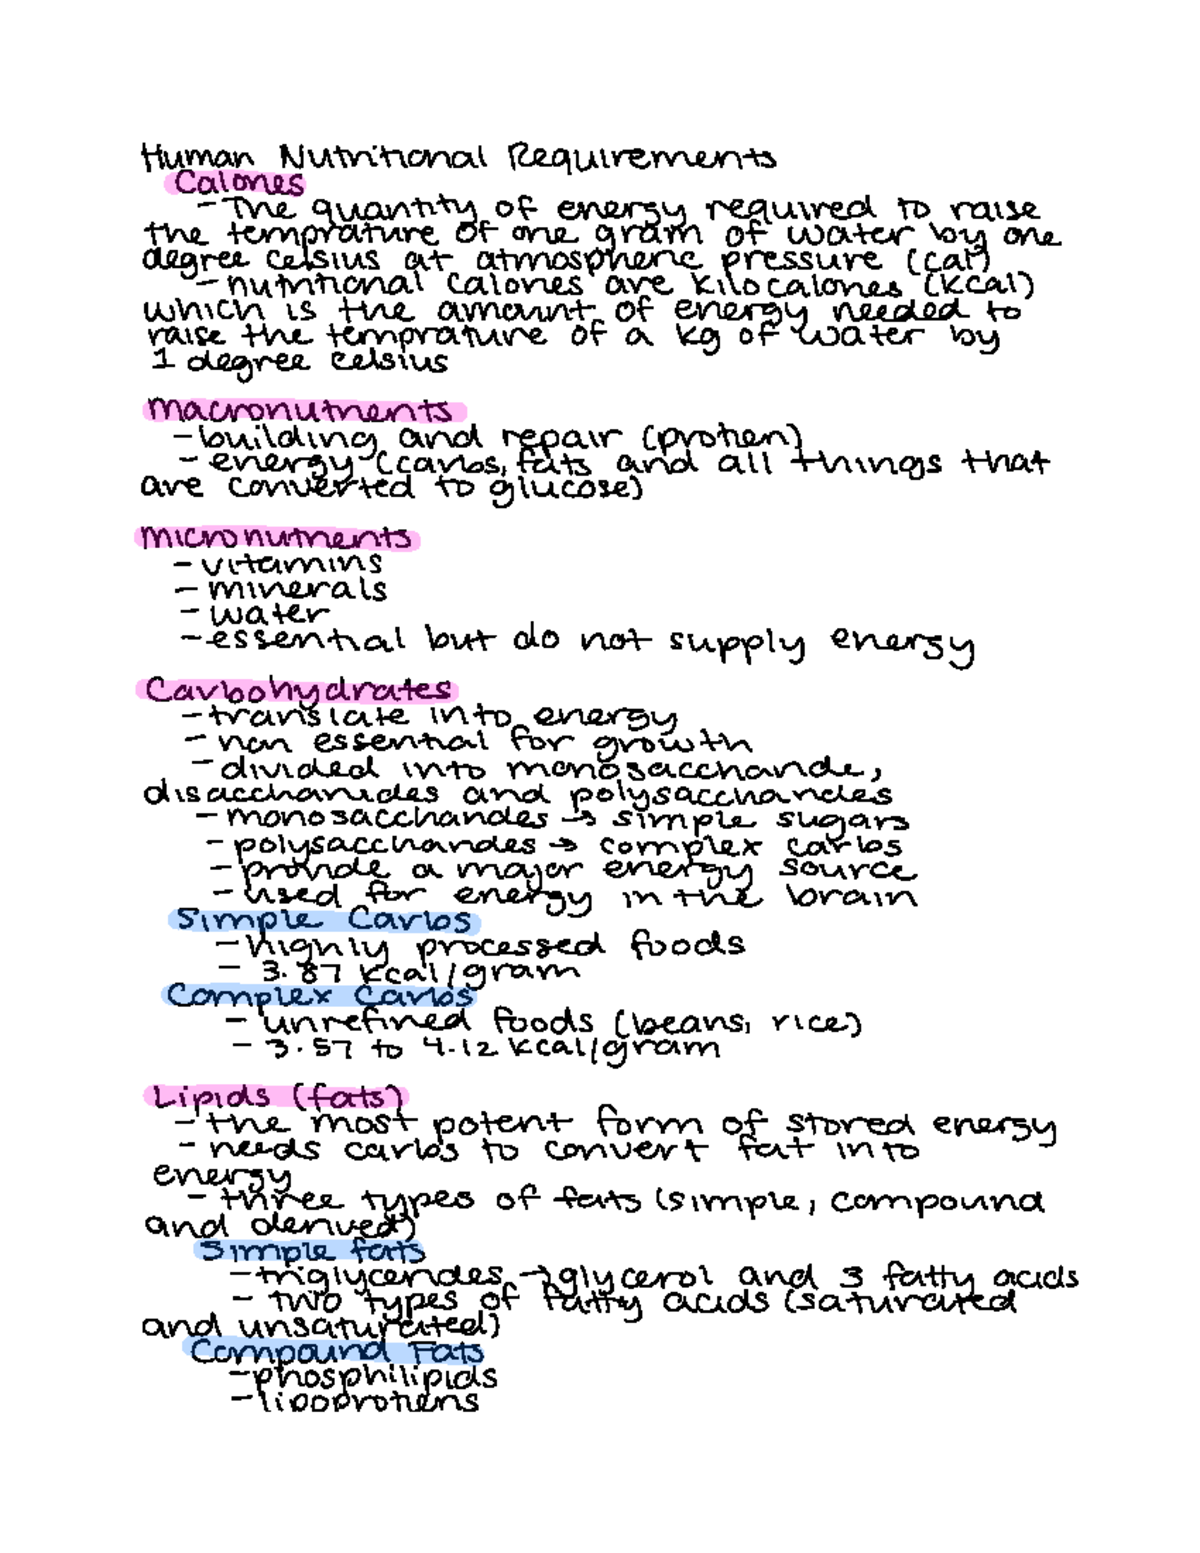 Human Nutritional Requirements
Calories
- The quantity of energy required to raise
the temprature of one gram of water by one
degree celsius at atmospheric pressure (cal)
- nutritional calories are kilocalories (kcal)
which is the amount of energy needed to
raise the temprature of a kg of water by
1 degree celsius
Macronutrients
- building and repair (protien)
- energy (carbs, fats and all things that
are converted to glucose)
Micronutrients
- vitamins
- minerals
- water
- essential but do not supply energy
Carbohydrates
- translate into energy
- non essential for growth
- divided into monosaccharide,
disaccharides and polysaccharides
- monosaccharides → simple sugars
- polysaccharides → complex carbs
- provide a major energy source
- used for energy in the brain
Simple Carbs
- highly processed foods
- 3.87 kcal/gram
Complex Carbs
- unrefined foods (beans, rice)
- 3.57 to 4.12 kcal/gram
Lipids (fats)
- the most potent form of stored energy
- needs carbs to convert fat into
energy
- three types of fats (simple, compound
and derived)
Simple fats
- triglycerides → glycerol and 3 fatty acids
- two types of fatty acids (saturated
and unsaturated)
Compound Fats
- phosphilipids
- lipoprotiens